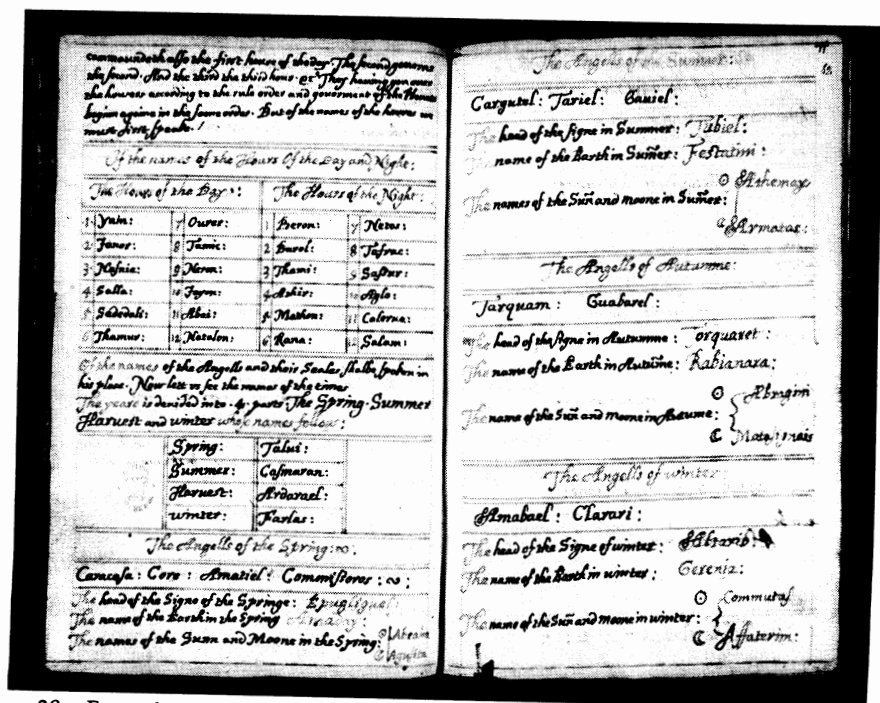 commoundeth also the first houre of the day. The second governs
the second. And the third the third hour. &c They having gon over
the houres according to the rule order and goverment of the Houres
begin againe in the same order. But of the names of the houres we
must first speake.
Of the names of the Hours Of the Day and Night:
The Hours of the Day: The Hours of the Night:
1 Yain: 7 Ourer: 1 Beron: 7 Netos:
2 Janor: 8 Tamic: 2 Barol: 8 Tafrac:
3 Nasnia: 9 Neron: 3 Thami: 9 Sassur:
4 Salla: 10 Jayon: 4 Athir: 10 Aglo:
5 Sadedali: 11 Abai: 5 Mathon: 11 Calerna:
6 Thamur: 12 Natalon: 6 Rana: 12 Salam:
Of the names of the Angells and their Seales shalbe spoken in
his place. Now lett vs see the names of the times
The yeare is devided into .4. parts The Spring. Summer
Harvest and winter whose names follow:
Spring: Talui:
Summer: Casmaran:
Harvest: Ardarael:
winter: Farlas:
The Angells of the Spring:
Caracasa: Core: Amatiel: Commissoros:
The head of the Signe of the Springe: Spugliguel:
The name of the Earth in the Spring Amaday:
The names of the Sunn and Moone in the Spring: ☉ Abraim
☾ Agusita
The Angells of the Summer:
Gargutel: Tariel: Gauiel:
The head of the signe in Summer: Tubiel:
The name of the Earth in Sum̃er: Festatini:
☉ Athemay
The names of the Suñ and moone in Sum̃er:
☾ Armatas:
The Angells of Autumne:
Tarquam: Guabarel:
The head of the signe in Autumne: Torquaret:
The name of the Earth in Autum̃e: Rabianara:
☉ Abragini
The name of the Suñ and moone in Autume:
☾ Matasignais
The Angells of winter
Amabael: Ctarari:
The head of the Signe of winter: Altarib:
The name of the Earth in winter: Gerenia:
☉ Commutaf
The name of the Suñ and moone in winter:
☾ Affaterim: